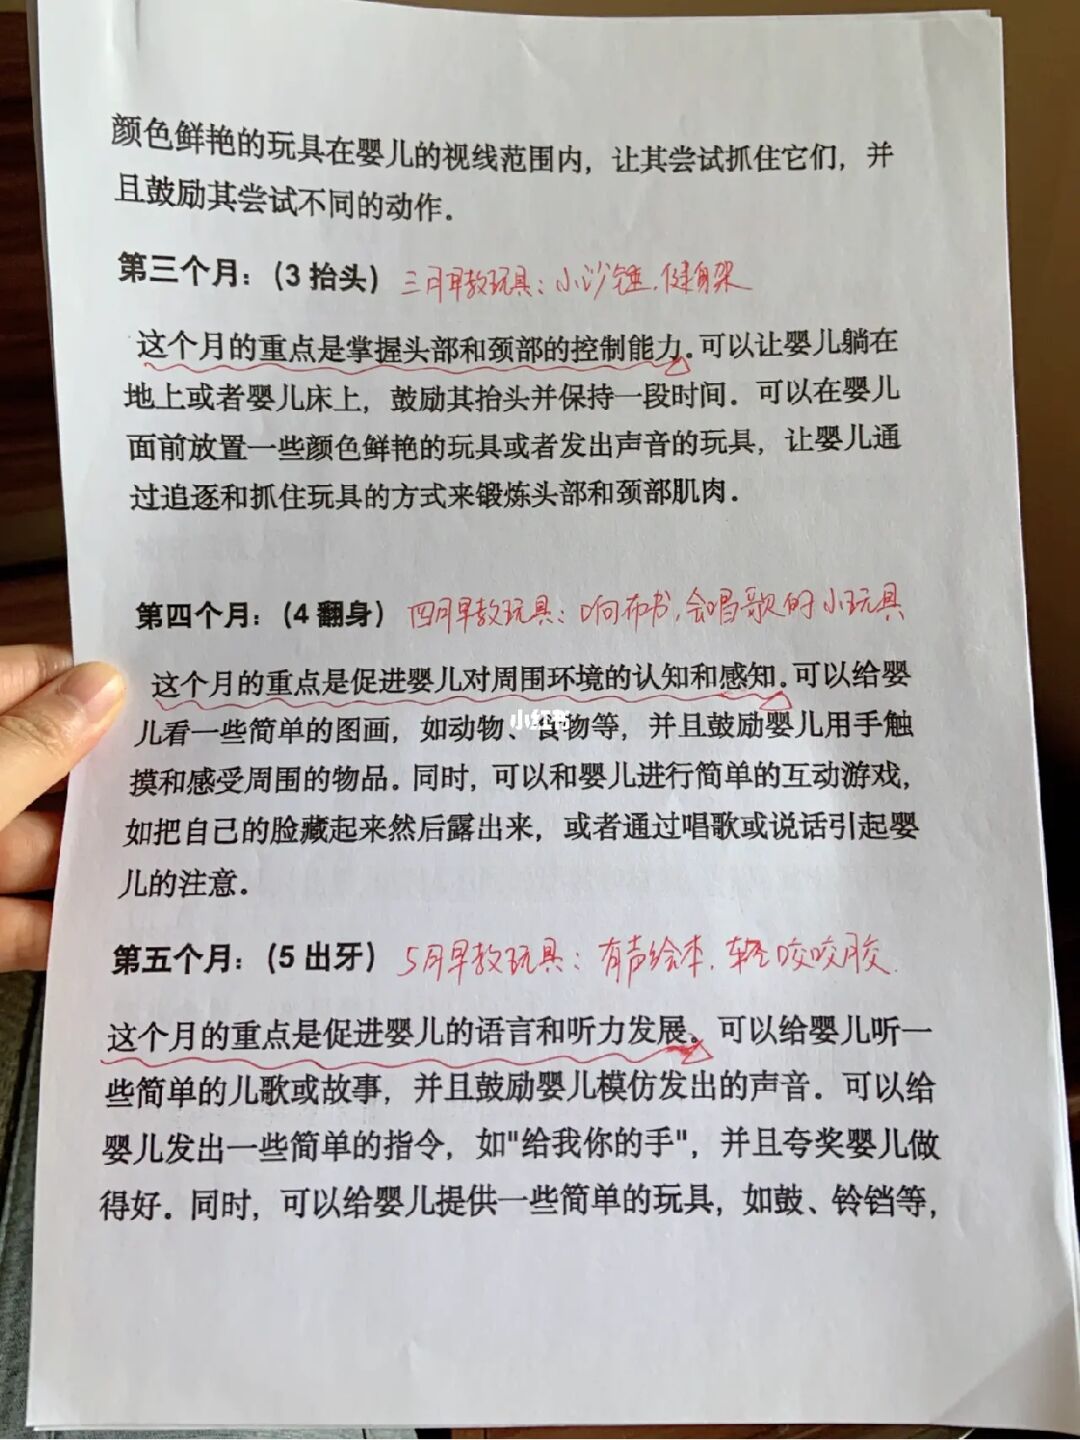 颜色鲜艳的玩具在婴儿的视线范围内，让其尝试抓住它们，并
且鼓励其尝试不同的动作．
第三个月：(3 抬头) 三月早教玩具：小沙锤．健身架
这个月的重点是掌握头部和颈部的控制能力。可以让婴儿躺在
地上或者婴儿床上，鼓励其抬头并保持一段时间．可以在婴儿
面前放置一些颜色鲜艳的玩具或者发出声音的玩具，让婴儿通
过追逐和抓住玩具的方式来锻炼头部和颈部肌肉．
第四个月：(4 翻身) 四月早教玩具：响布书，会唱歌的小玩具
这个月的重点是促进婴儿对周围环境的认知和感知。可以给婴
儿看一些简单的图画，如动物、食物等，并且鼓励婴儿用手触
小红书
摸和感受周围的物品。同时，可以和婴儿进行简单的互动游戏，
如把自己的脸藏起来然后露出来，或者通过唱歌或说话引起婴
儿的注意。
第五个月：(5 出牙) 5月早教玩具：有声绘本．咬咬胶．
这个月的重点是促进婴儿的语言和听力发展。可以给婴儿听一
些简单的儿歌或故事，并且鼓励婴儿模仿发出的声音。可以给
婴儿发出一些简单的指令，如"给我你的手"，并且夸奖婴儿做
得好。同时，可以给婴儿提供一些简单的玩具，如鼓、铃铛等，